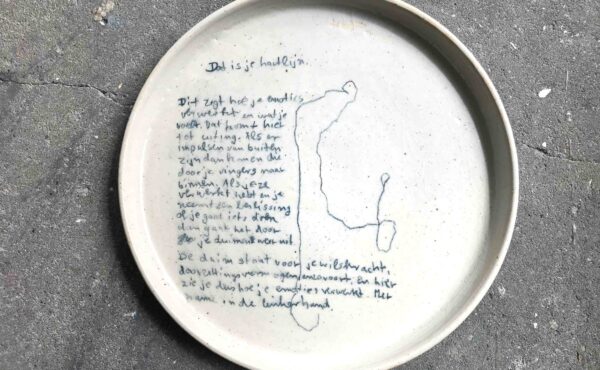 Dat is je hartlijn.
Dit zegt hoe je emoties
verwerkt en wat je
voelt. Dat komt hier
tot uiting. Als er
impulsen van buiten
zijn dan komen die
door je vingers naar
binnen. Als je ze
verwerkt hebt en je
neemt een beslissing
of je gaat iets doen
dan gaat het door
je duim weer uit.
De duim staat voor je wilskracht,
doorzettingsvermogen enzovoort. En hier
zie je dus hoe je emoties verwerkt. Met
name in de linkerhand.